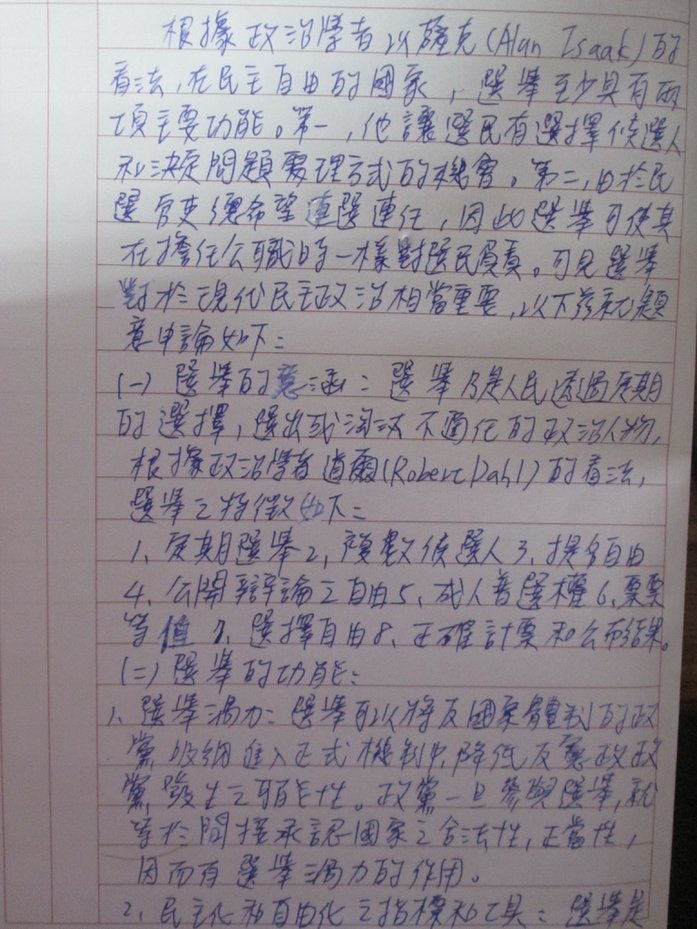 根據政治學者以薩克(Alan Isaak)的
看法,在民主自由的國家,選舉至少具有兩
項主要功能。第一,他讓選民有選擇候選人
和決定問題處理方式的機會。第二,由於民
選官吏總希望連選連任,因此選舉可使其
在擔任公職時一樣對選民負責。可見選舉
對於現代民主政治相當重要,以下茲就題
意申論如下:
(一)選舉的意涵:選舉乃是人民透過定期
的選擇,選出或淘汰不適任的政治人物,
根據政治學者道爾(Robert Dahl)的看法,
選舉之特徵如下:
1、定期選舉2、複數候選人3、提名自由
4、公開辯論之自由5、成人普選權6、票票
等值7、選擇自由8、正確計票和公布結果。
(二)選舉的功能:
1、選舉渦力:選舉可以將反國家體制的政
黨吸納進入正式機制中,降低反憲政政
黨發生之可能性。政黨一旦參與選舉,就
等於間接承認國家之合法性,正當性,
因而有選舉渦力的作用。
2、民主化和自由化之指標和工具:選舉是